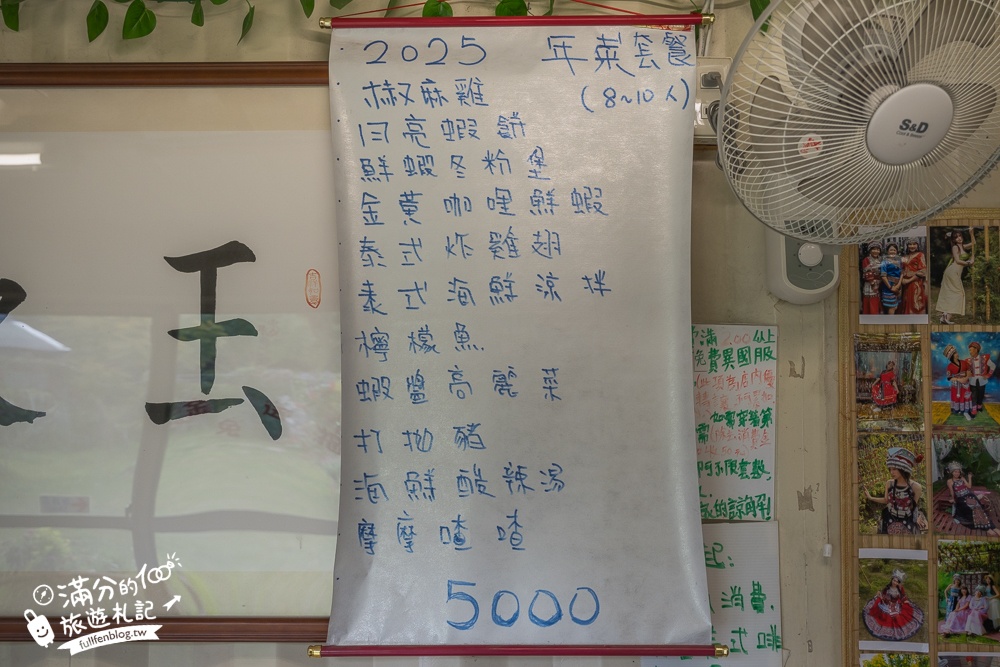 2025 年菜套餐
椒麻雞 (8~10人)
月亮蝦餅
鮮蝦冬粉堡
金黃咖哩鮮蝦
泰式炸雞翅
泰式海鮮涼拌
檸檬魚.
蝦醬高麗菜
打拋豬
海鮮酸辣湯
摩摩喳喳
5000
玉
S&D
滿 200 以上
免費異國服
的諒解!
起:
消費.
式咖
滿分的
旅遊札記
fullfenblog.tw